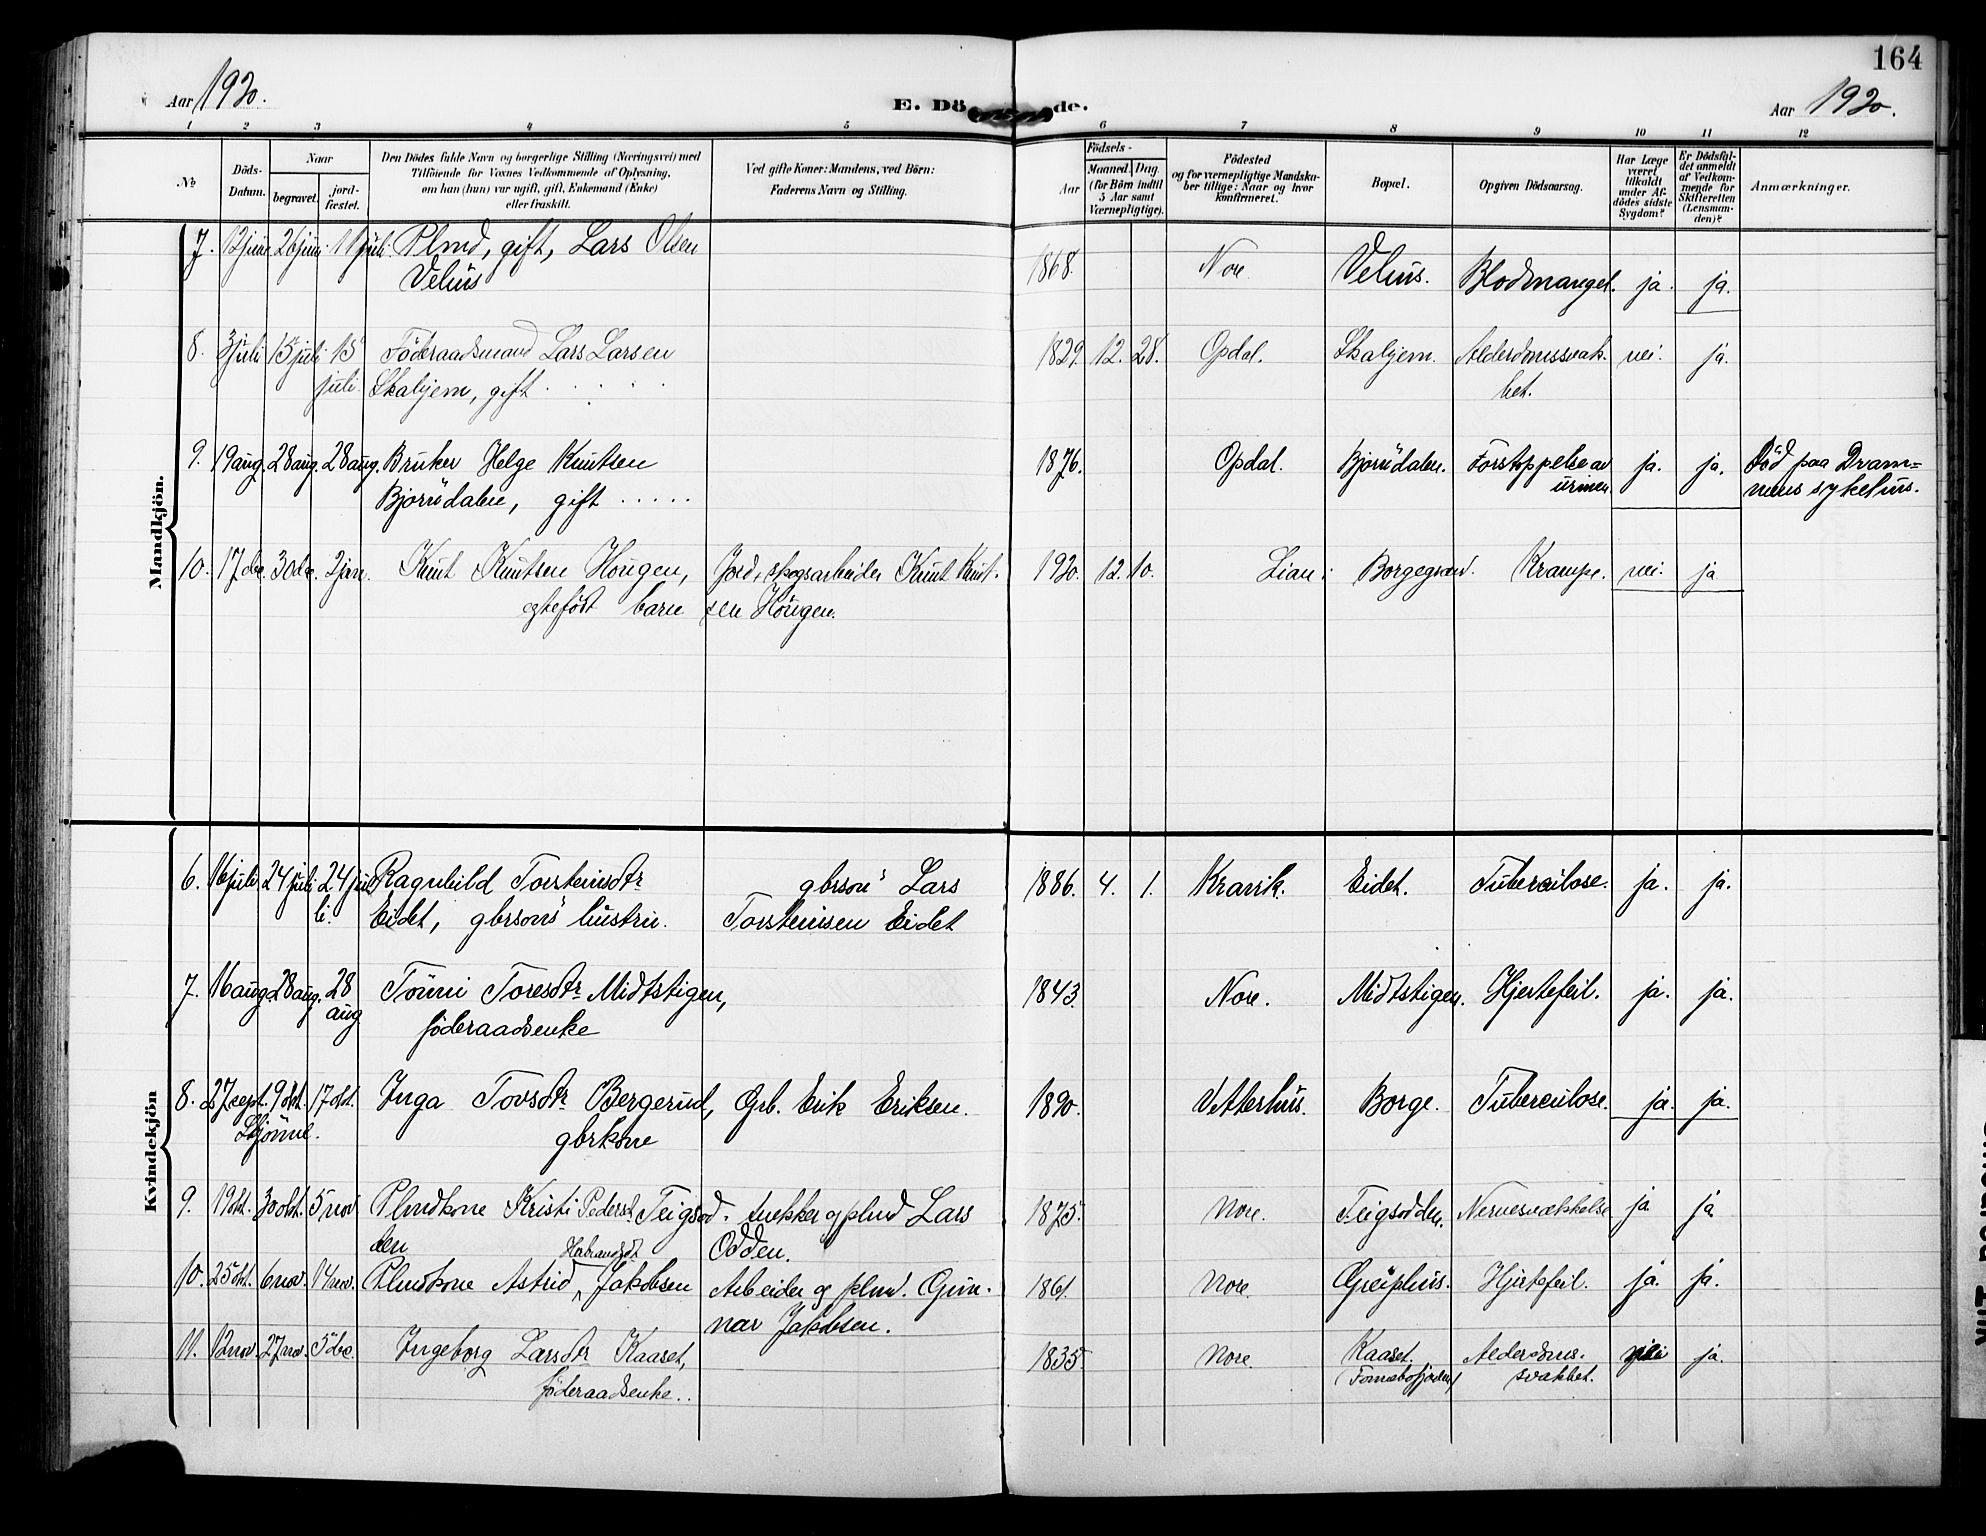 164
Aar 1920.
E. Dö de.
Aar 1920.
1 2 3 4 5 6 7 8 9 10 11 12
No
Döds-
Datum.
Naar
begravet.
jord-
fæstet.
Den Dödes fulde Navn og borgerlige Stilling (Næringsvei) med
Tilföiende for Voxnes Vedkommende af Oplysning,
om han (hun) var ugift, gift, Enkemand (Enke)
eller fraskilt.
Ved gifte Koner: Mandens, ved Börn:
Faderens Navn og Stilling.
Födsels-
Aar
Maaned. Dag.
(for Börn indtil
5 Aar samt
Værnepligtige).
Födested
og for værnepligtige Mandska-
ber tillige: Naar og hvor
konfirmeret.
Bopæl.
Opgiven Dödsaarsag.
Har Læge
været
tilkaldt
under Af-
dödes sidste
Sygdom?
Er Dödsfal-
det anmeldt
af Vedkom-
mende for
Skifteretten
(Lensman-
den)?
Anmærkninger.
Mandkjön.
7. 12 juni 26 juni 11 juli Plmd, gift, Lars Olsen
Velius
1868. Nore. Velius. Blodmangel. ja. ja.
8. 3 juli 15 juli 15 Föderaadsmand Lars Larsen
juli. Skaljem, gift
1829. 12. 28. Opdal. Skaljem. Alderdomssvak-
het. nei. ja.
9. 19 aug. 28 aug. 28 aug. Bruker Helge Knutsen
Bjørndalen, gift
1876. Opdal. Bjørndalen. Forstoppelse av
urinen. ja. ja. Död paa Dram-
mens sykehus.
10. 17 dec. 30 dec. 2 jan. Knut Knutsen Hougen, Jord, skogsarbeider Knut Knut-
egtefödt barn sen Hougen.
1920. 12. 10. Lian i Borgegrend. Krampe. nei. ja
Kvindekjön
6. 16 juli 24 juli 24 juli Ragnhild Torsteinsdtr gbrson's Lars
Eidet, gbrsons hustru. Torsteinsen Eidet
1886. 4. 1. Kravik. Eidet. Tuberculose. ja. ja.
7. 16 aug. 28 aug. 28 Tönni Toresdtr Midtstigen,
aug föderaadsenke
1843. Nore. Midtstigen. Hjertefeil. ja. ja.
8. 27 sept. 9 okt. 17 okt. Inga Tovsdtr Bergerud, Grb. Erik Eriksen.
Skjönne. gbrkone
1890. Vetterhus. Borge. Tuberculose. ja. ja.
9. 19 okt. 30 okt. 5 nov Plmdkone Kristi Pedersd. Teigsod- snekker og plmd Lars
den Odden.
1875. Nore. Teigsodden. Nervesvækkelse ja ja
10. 25 okt. 6 nov. 14 nov. Plmdkone Astrid Herbrandsdt Jakobsen Arbeider og plmd. Gun-
nar Jakobsen.
1861. Nore. Hjertefeil. ja. ja.
11. 12 nov. 27 nov. 5 dec. Ingeborg Larsdtr Kaaset,
föderaadsenke.
1835. Nore. Kaaset. Alderdoms-
svakhet. nei ja.